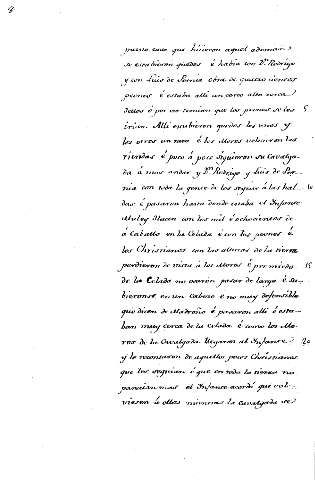 puesto caso que hicieron aquel ademan
se estubieron quedos é habia con Dn. Rodrigo
y con Luis de Pernia obra de quatrocientos
peones é estaba alli un cerro alto cerca
dellos é por no temian que los peones se les
irian. Alli estubieron quedos los unos y
los otros un rato é los Moros volvieron las
riendas é poco á poco siguieron su Cavalga-
da á mas andar y Dn. Rodrigo y Luis de Per-
nia con toda la gente de los seguir á las hal-
das é pasaron hasta donde estaba el Infante
Muley Hacen con los mil é ochocientos de
á Caballo en la Celada é con los peones é
los Christianos con las alturas de la tierra
perdieron de vista á los Moros é por miedo
de la Celada no osaron pasar de largo é su-
bieronse en un Cabezo é no muy defensible
que dicen de Madroño é pasaron alli é esta-
ban muy cerca de la Celada é como los Mo-
ros de la Cavalgada llegaron al Infante
y le recontaron de aquellos pocos Christianos
que los seguian é que en toda la tierra no
parecian mas el Infante acordó que vol-
viesen á ellos mientras la Cavalgada se